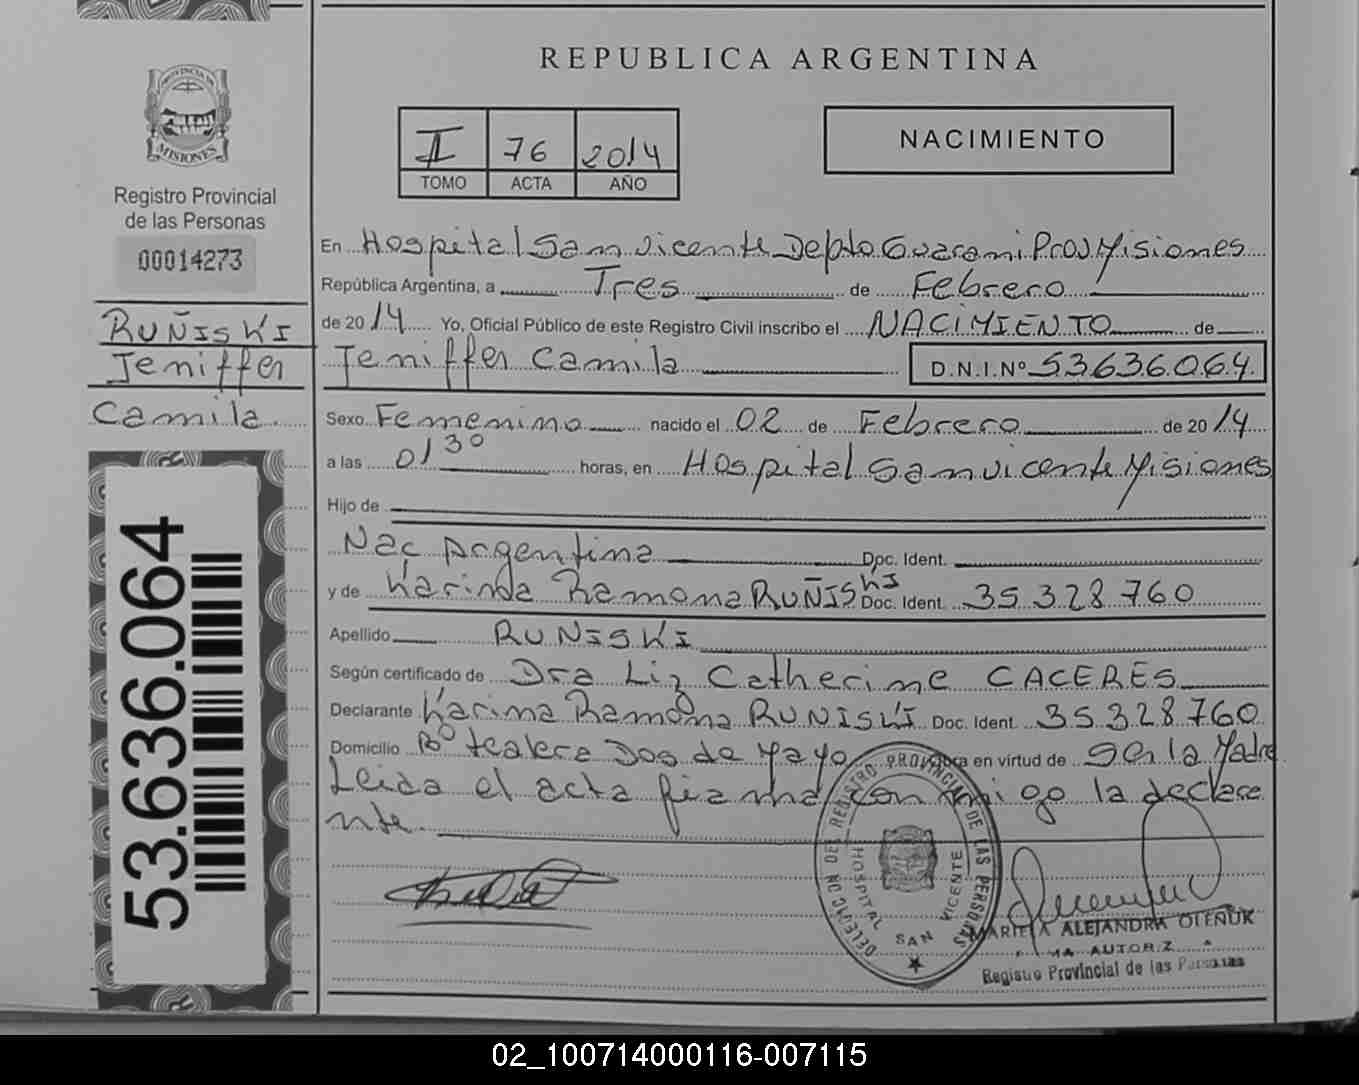 REPUBLICA ARGENTINA
PROVINCIA DE
MISIONES
Registro Provincial
de las Personas
00014273
RUÑISKI
Jeniffer
Camila
53.636.064
II 76 2014
TOMO ACTA AÑO
NACIMIENTO
En Hospital San Vicente Depto Guarani Prov Misiones
República Argentina, a Tres de Febrero
de 2014 Yo, Oficial Público de este Registro Civil inscribo el NACIMIENTO de
Jeniffer Camila D.N.I.Nº 53.636.064
Sexo Femenino nacido el 02 de Febrero de 2014
a las 01 30 horas, en Hospital San Vicente Misiones
Hijo de
Nac Argentina Doc. Ident.
y de Karina Ramona RUÑISKI Doc. Ident. 35 328 760
Apellido RUÑISKI
Según certificado de Dra Liz Catherine CACERES
Declarante Karina Ramona RUNISKI Doc. Ident. 35 328 760
Domicilio Bº Dos de Mayo en virtud de Ser la Madre
Leida el acta firma conmigo la declara
nte.
DEL REGISTRO PROVINCIAL DE LAS PERSONAS
HOSPITAL SAN VICENTE
MARIELA ALEJANDRA OLENUK
Registro Provincial de las Personas
02_100714000116-007115